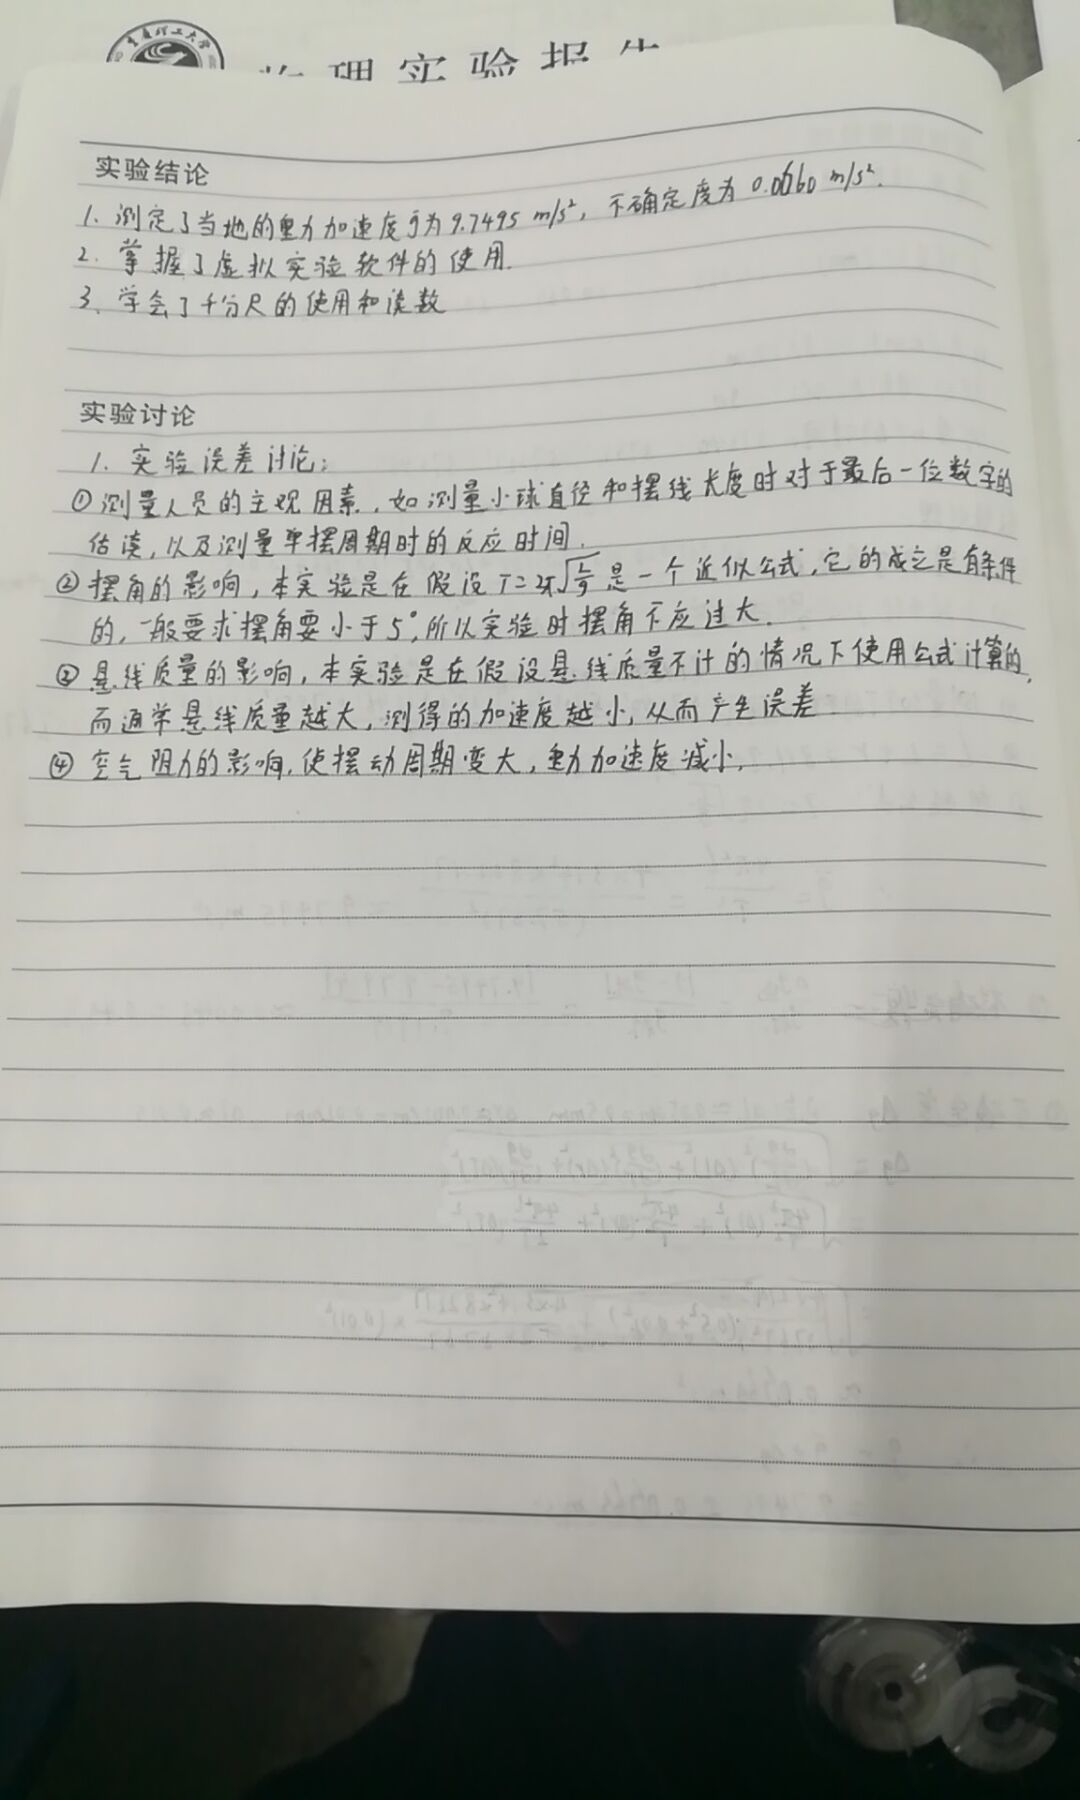 重庆理工大学
物理实验报告
实验结论
1. 测定了当地的重力加速度g为9.7495 m/s²，不确定度为 m/s².
2. 掌握了虚拟实验软件的使用.
3. 学会了千分尺的使用和读数
实验讨论
1. 实验误差讨论：
①测量人员的主观因素，如测量小球直径和摆线长度时对于最后一位数字的
估读，以及测量单摆周期时的反应时间.
②摆角的影响，本实验是在假设T=2π√(L/g)是一个近似公式，它的成立是有条件
的，一般要求摆角要小于5°，所以实验时摆角不应过大.
③悬线质量的影响，本实验是在假设悬线质量不计的情况下使用公式计算的，
而通常悬线质量越大，测得的加速度越小，从而产生误差
④空气阻力的影响，使摆动周期变大，重力加速度减小.